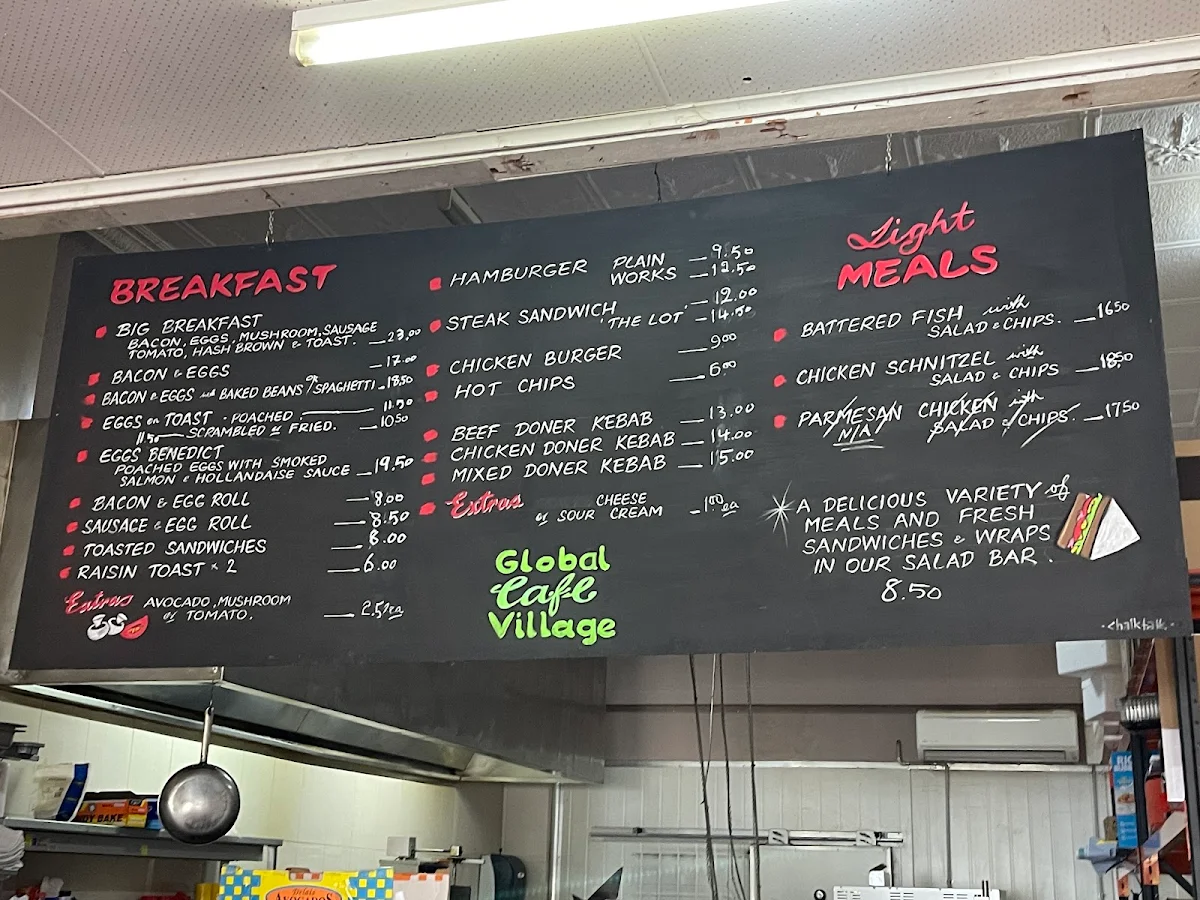 BREAKFAST
BIG BREAKFAST
BACON, EGGS, MUSHROOM, SAUSAGE
TOMATO, HASH BROWN & TOAST. — 23.00
BACON & EGGS — 17.00
BACON & EGGS with BAKED BEANS or/SPAGHETTI — 18.50
EGGS on TOAST - POACHED — 11.50
11.50 — SCRAMBLED or FRIED. — 10.50
EGGS BENEDICT
POACHED EGGS WITH SMOKED
SALMON & HOLLANDAISE SAUCE — 19.50
BACON & EGG ROLL — 8.00
SAUSAGE & EGG ROLL — 8.50
TOASTED SANDWICHES — 8.00
RAISIN TOAST x 2 — 6.00
Extras AVOCADO, MUSHROOM
or TOMATO. — 2.51ea
HAMBURGER PLAIN — 9.50
WORKS — 12.50
STEAK SANDWICH — 12.00
'THE LOT' — 14.50
CHICKEN BURGER — 9.00
HOT CHIPS — 6.00
BEEF DONER KEBAB — 13.00
CHICKEN DONER KEBAB — 14.00
MIXED DONER KEBAB — 15.00
Extras CHEESE
or SOUR CREAM — 1.00 ea
Global
Café
Village
Light
MEALS
BATTERED FISH with
SALAD & CHIPS. — 16.50
CHICKEN SCHNITZEL with
SALAD & CHIPS — 18.50
PARMESAN CHICKEN with
N/A SALAD & CHIPS. — 17.50
A DELICIOUS VARIETY of
MEALS AND FRESH
SANDWICHES & WRAPS
IN OUR SALAD BAR.
8.50
-chalktalk-
Delais
AVOCADOS